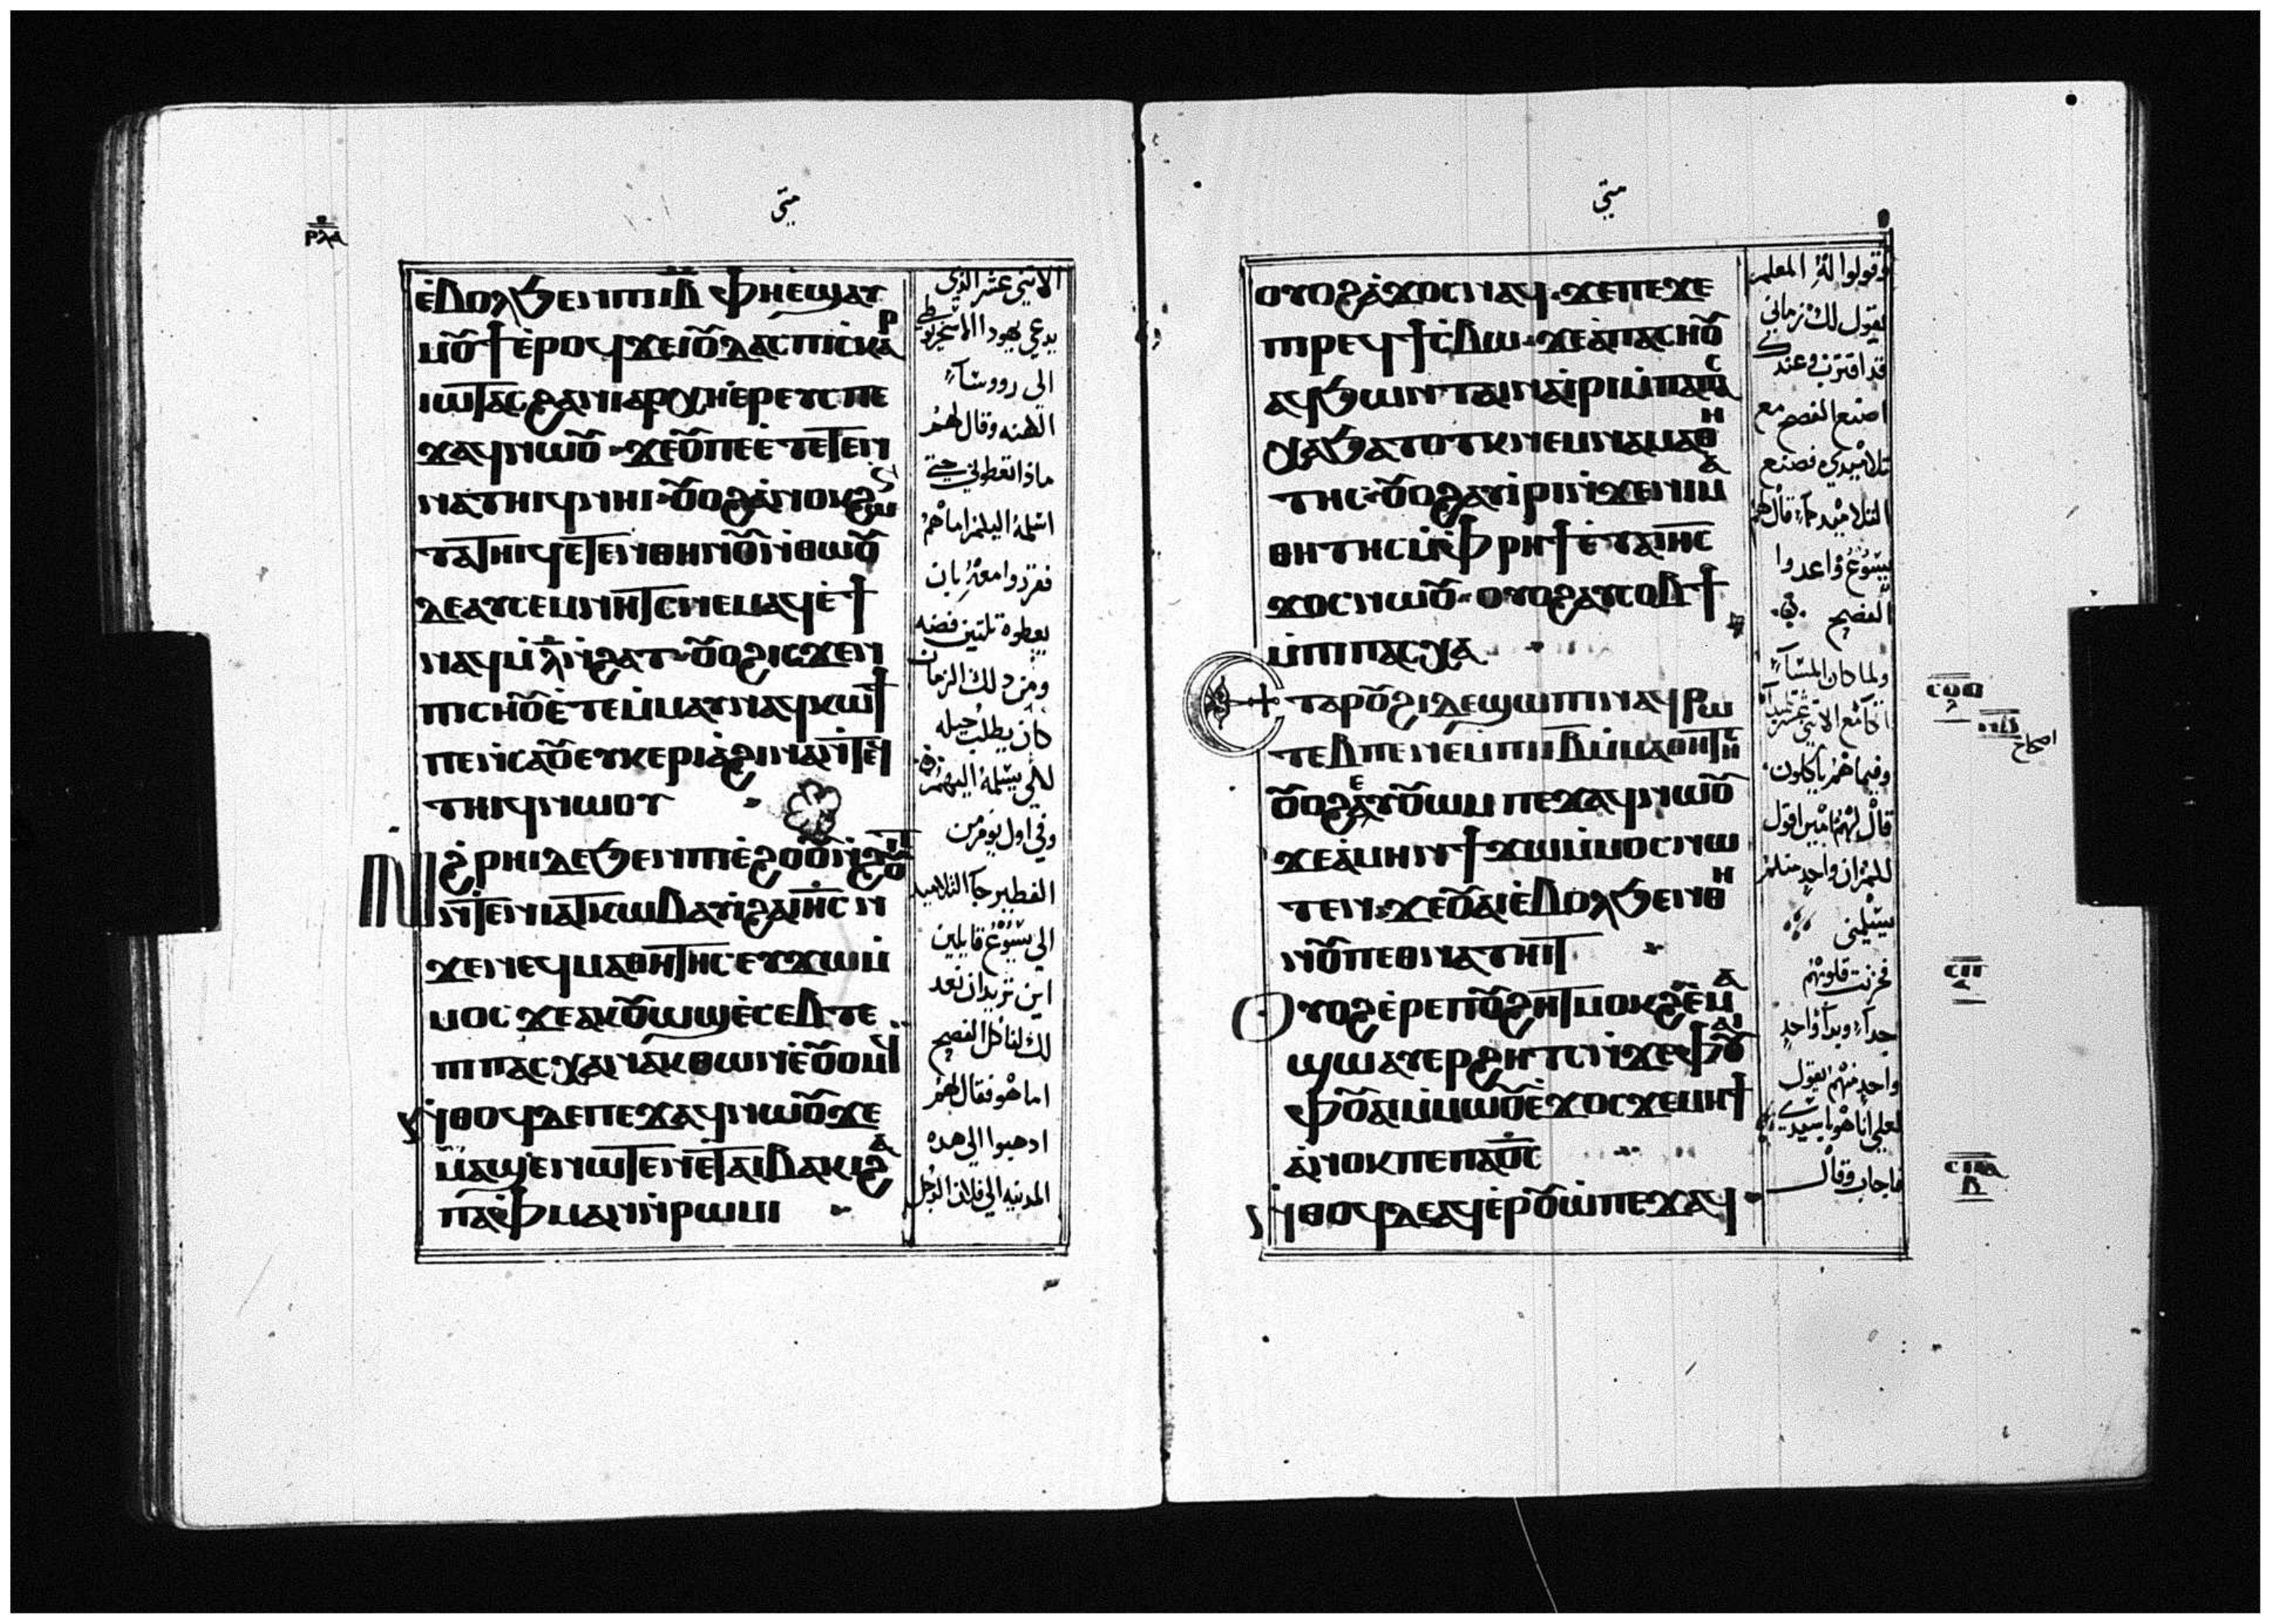 متى
ⲣⲗⲁ
ⲉ̀ⲃⲟⲗϧⲉⲛⲡⲓⲓ̅ⲃ̅ ⲫⲏⲉ̀ϣⲁⲩ
ⲙⲟⲩϯⲉ̀ⲣⲟϥϫⲉⲓⲟⲩⲇⲁⲥⲡⲓⲥⲕⲁⲣ
ⲓⲱⲧⲁⲥϩⲁⲛⲓⲁⲣⲭⲏⲉ̀ⲣⲉⲩⲥ ⲡⲉ
ϫⲁϥⲛⲱⲟⲩ ϫⲉⲟⲩⲡⲉⲉ̀ⲧⲉⲧⲉⲛ
ⲛⲁⲧⲏⲓϥⲛⲏⲓ ⲟⲩⲟϩⲁ̀ⲛⲟⲕϩⲱ
ⲧⲁⲧⲏⲓϥⲉⲧⲉⲛⲑⲏⲛⲟⲩⲛ̀ⲑⲱⲟⲩ
ⲇⲉⲁⲩⲥⲉⲙⲛⲏⲧⲥⲛⲉⲙⲁϥⲉ̀ϯ
ⲛⲁϥⲙ̀ⲗ̅ⲛ̀ϩⲁⲧ ⲟⲩⲟϩⲓⲥϫⲉⲛ
ⲡⲓⲥⲏⲟⲩⲉ̀ⲧⲉⲙ̀ⲙⲁⲩⲛⲁϥⲕⲱϯ
ⲡⲉⲛ̀ⲥⲁⲟⲩⲉⲩⲕⲉⲣⲓⲁ̀ϩⲓⲛⲁⲛ̀ⲧⲉϥ
ⲧⲏⲓϥⲛⲱⲟⲩ
ⲛϩ̀ⲣⲏⲓⲇⲉϧⲉⲛⲡⲓⲉ̀ϩⲟⲟⲩⲛ̀ϩⲟⲩⲓⲧ
ⲛ̀ⲧⲉⲛⲓⲁⲧⲕⲱⲃⲁⲩⲓ̀ϩⲁⲓⲏⲥ ⲛ
ϫⲉⲛⲉϥⲙⲁⲑⲏⲧⲏⲥ ⲉⲩϫⲱⲙ̀
ⲙⲟⲥ ϫⲉⲁⲕⲟⲩⲱϣⲉ̀ⲥⲉⲃⲧⲉ
ⲡⲓⲡⲁⲥⲭⲁⲛⲁⲕⲑⲱⲛⲉ̀ⲟⲩⲟⲙϥ
ⲛ̀ⲑⲟϥⲇⲉⲡⲉϫⲁϥⲛⲱⲟⲩϫⲉ
ⲙⲁϣⲉⲛⲱⲧⲉⲛⲉⲧⲁⲓⲃⲁⲕⲓϩⲁ
ⲡⲁⲫⲙⲁⲛⲛ̀ⲣⲱⲙⲓ
الاثنى عشر الذى
يدعى يهودا الاسخريوطى
الى رووسآء
الكهنه وقال لهم
ماذا تعطونى حتى
اسلمه اليكم اما هم
فقرروا معه بان
يعطوه تلتين فضه
ومن دلك الزمان
كان يطلب حيله
لكى يسلمه اليهم
وفى اول يوم من
الفطير جآ التلاميد
الى يسوع قايلين
اين تريد ان نعد
لك لناكل الفصح
اما هو فقال لهم
ادهبوا الى هده
المدينه الى فلان الرجل
متى
ⲟⲩⲟϩⲁ̀ϫⲟⲥⲛⲁϥ ϫⲉⲡⲉϫⲉ
ⲡⲓⲣⲉϥϯⲥ̀ⲃⲱ ϫⲉⲁ̀ⲡⲁⲥⲏⲟⲩ
ⲁϥϧⲱⲛⲧ ⲁⲓⲛⲁⲓ̀ⲣⲓⲙ̀ⲡⲁⲡⲁⲥ
ⲭⲁϧⲁⲧⲟⲧⲕⲛⲉⲙⲛⲁⲙⲁⲑⲏ
ⲧⲏⲥ ⲟⲩⲟϩⲁⲩⲓ̀ⲣⲓⲛ̀ϫⲉⲛⲓⲙⲁ
ⲑⲏⲧⲏⲥⲙ̀ⲫⲣⲏϯⲉ̀ⲧⲁⲓⲏⲥ
ϫⲟⲥⲛⲱⲟⲩ ⲟⲩⲟϩⲁⲩⲥⲟⲃϯ
ⲙ̀ⲡⲓⲡⲁⲥⲭⲁ
ⲉⲧⲁⲣⲟⲩϩⲓⲇⲉϣⲱⲡⲓⲛⲁϥⲣⲱ
ⲧⲉⲃⲡⲉⲛⲉⲙⲡⲓⲓ̅ⲃ̅ⲙ̀ⲙⲁⲑⲏⲧⲏⲥ
ⲟⲩⲟϩⲉⲩⲟⲩⲱⲙ ⲡⲉϫⲁϥⲛⲱⲟⲩ
ϫⲉⲁ̀ⲙⲏⲛϯϫⲱⲙ̀ⲙⲟⲥⲛⲱ
ⲧⲉⲛ ϫⲉⲟⲩⲁⲓⲉ̀ⲃⲟⲗϧⲉⲛⲑⲏ
ⲛⲟⲩⲡⲉⲑⲛⲁⲧⲏⲓⲧ
ⲟⲩⲟϩⲉ̀ⲣⲉⲡⲟⲩϩⲏⲧⲙⲟⲕϩⲉ̀ⲙⲁ
ϣⲱⲁⲩⲉⲣϩⲏⲧⲥⲛ̀ϫⲉⲫⲟⲩⲁⲓ
ⲫⲟⲩⲁⲓⲙ̀ⲙⲱⲟⲩⲉ̀ϫⲟⲥϫⲉⲙⲏϯ
ⲁ̀ⲛⲟⲕⲡⲉⲡⲁϭⲥ
ⲛ̀ⲑⲟϥⲇⲉⲁϥⲉ̀ⲣⲟⲩⲱ̀ⲡⲉϫⲁϥ
وقولوا له المعلم
يقول لك زمانى
قد اقترب وعندك
اصنع الفصح مع
تلاميدى فصنع
التلاميد كما قال لهم
يسوع واعدوا
الفصح
ولما كان المسآء
اتكا مع الاثنى عشر تلميدآ
وفيما هم ياكلون
قال لهم امين اقول
لكم ان واحد منكم
يسلمنى
فحزنت قلوبهم
جدآ وبدآ واحد
واحد منهم يقول
لعلى انا هو يا سيدى
فاجاب وقال
ⲥⲟⲑ
اصحاح
ⲥⲡ
ⲥⲡⲁ
ⲃ